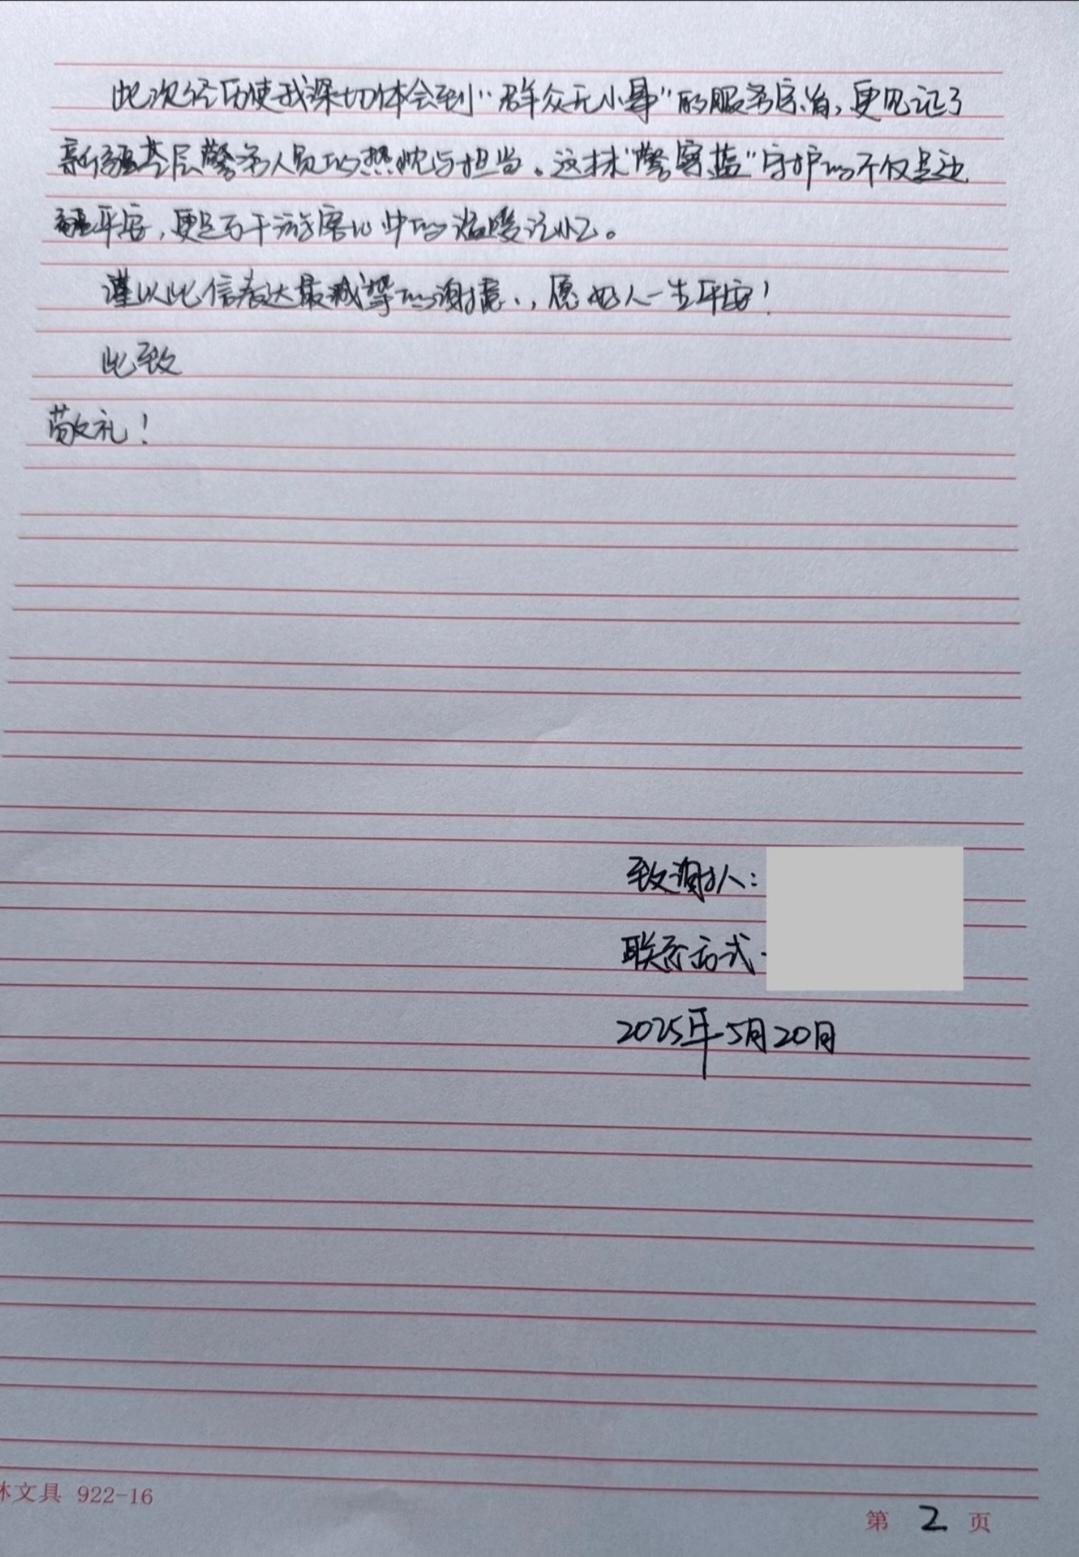 此次经历使我深切体会到“群众无小事”的服务宗旨，更见证了
新疆基层警务人员的热忱与担当。这抹“警察蓝”守护的不仅是边
疆平安，更是万千游客心中的温暖记忆。
谨以此信表达最诚挚的谢意，愿好人一生平安！
此致
敬礼！
致谢人：
联系方式：
2025年5月20日
林文具 922-16
第 2 页